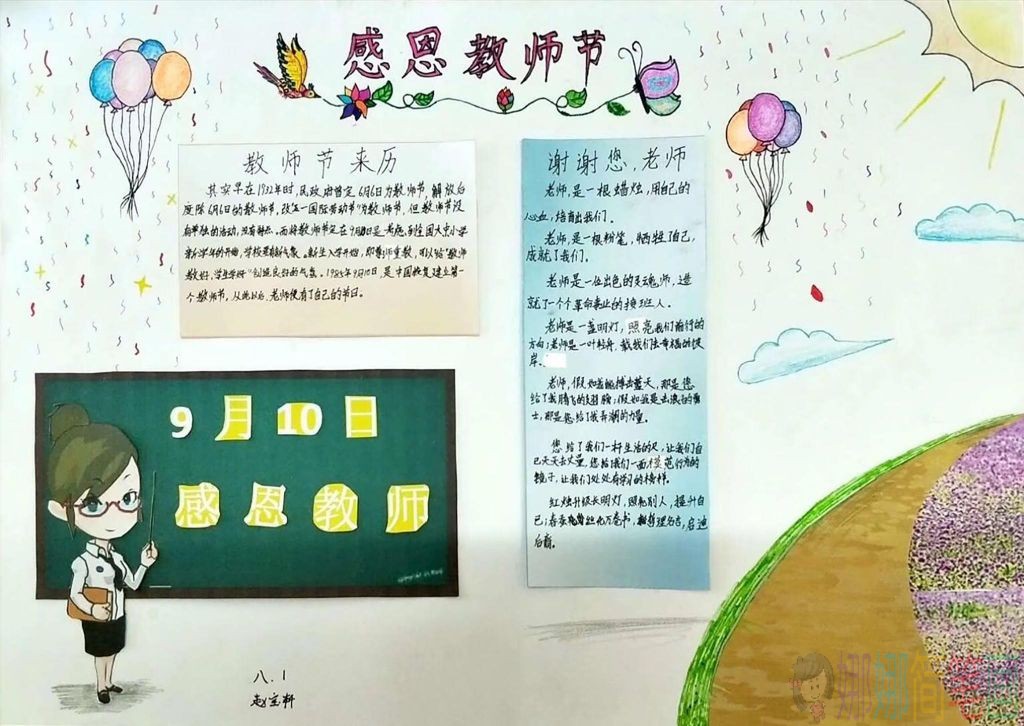 感恩教师节
教师节来历
其实早在1932年时,民政府曾定6月6日为教师节,解放后
废除6月6日的教师节,改"五一国际劳动节"为教师节,但教师节没
有单独的活动,没有特点。而将教师节定在9月10日是考虑到全国大中小学
新学年的开始,学校要有新气象。新生入学开始,即尊师重教,可以给"教师
教好,学生学好"创造良好的气氛。1985年9月10日,是中国恢复建立第一
个教师节,从此以后,老师便有了自己的节日。
谢谢您,老师
老师,是一根蜡烛,用自己的
心血,培育出我们。
老师,是一根粉笔,牺牲了自己,
成就了我们。
老师是一位出色的灵魂师,造
就了一个个革命事业的接班人。
老师是一盏明灯,照亮我们前行的
方向;老师是一叶轻舟,载我们去幸福的彼
岸。
老师,假如我能搏击蓝天,那是您
给了我腾飞的翅膀;假如我是击浪的勇
士,那是您给了我弄潮的力量。
您给了我们一杆生活的尺,让我们自
己天天去丈量,您给我们一面模范行为的
镜子,让我们处处有学习的榜样。
红烛升级长明灯,照亮别人,提升自
己;春蚕
丝化万卷书,
启迪
后裔。
9月10日
感恩教师
八.1
娜娜简笔画